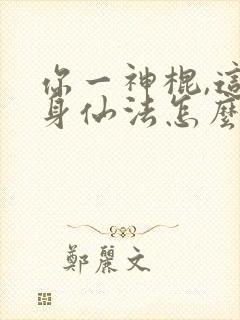 你一神棍,這
身仙法怎麼
鄭麗文